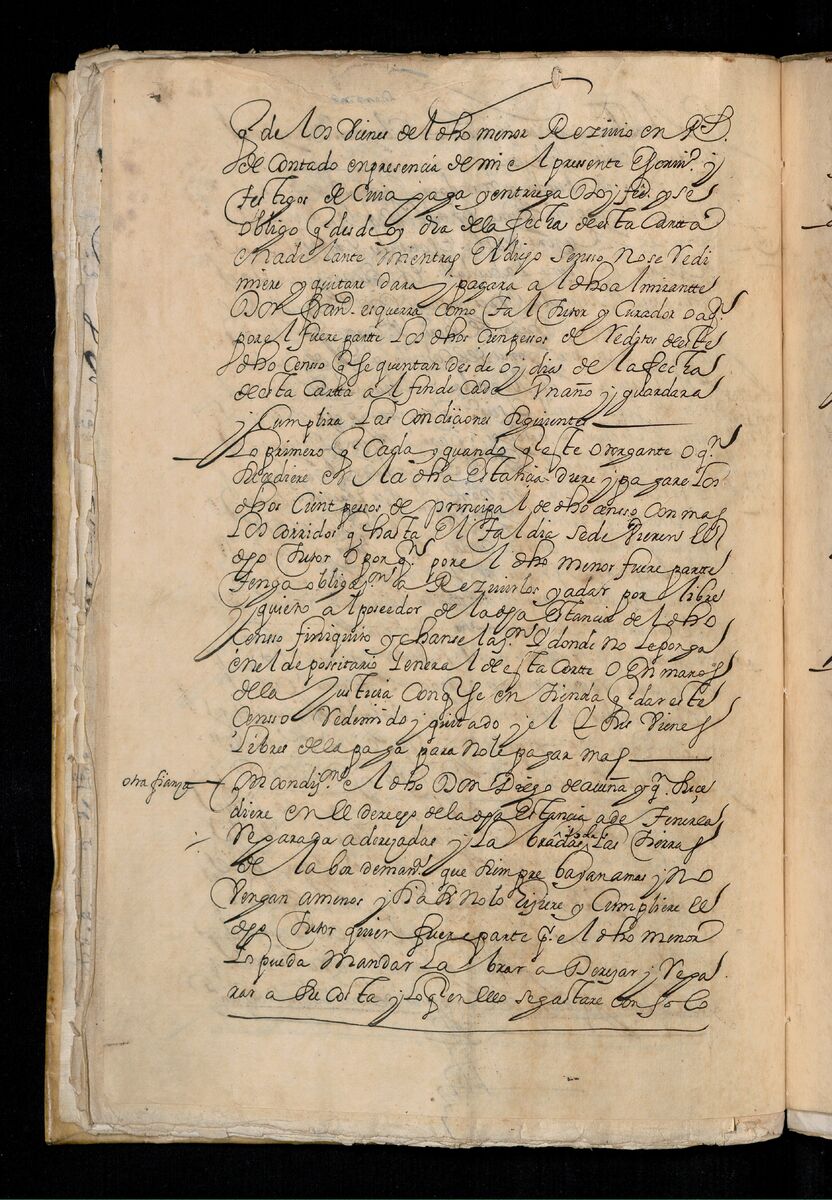 q.e de los vienes del dho menor Rezivio en R.S
de contado en presencia de mi el presente Escriu.o y
testigos de cuia paga y entriega Doy fee. y se
obligo q.e desde oy dia de la fecha de esta Cartta
en adelante mientras El dijo Sensso no se Redi
miere y quitare dara y pagara al dho almirantte
Don fran.co esquerra como tal tutor y curador o a q.n
por el fuere partte los dhos cien pessos de Reditos de este
dho Censso q.e se quentan desde oy dia de la fecha
de esta Cartta al fin de Cada un año y guardara
y Cumplira las condiciones siguientes
Lo primero q.e Cada y quando q.e este otorgante o q.n
sucediere en la dha Estancia diere y pagare los
dhos Cient pessos de principal de dho censso con mas
los corridos q.e hasta El tal dia se devieren El
dho tutor o por q.n por el dho menor fuere partte
tenga obligas.on a Rezivirlos y a dar por libre
y quieto al poseedor de la dha Estancia del dho
Censso finiquito y chanselas.on y donde no le ponga
en el depossitario Jeneral de esta Cortte o En manos
de la Justicia con q.e se entienda q.dar este
Censso Redimido y quitado y el dhos vienes
Libres de la paga para no le pagar mas
otra fianza
Con condiss.on el dho Don Diego de acuña y q.n suce
diere en el derecho de la dha Estancia a de tenerla
Reparada aderesadas y labradas todas las tierras
de labor de man.a que siempre bayan a mas y no
Vengan a menos y si assi no lo hiciere y Cumpliere El
dho tutor quien fuere parte p.r el dho menor
lo pueda mandar labrar aderesar y Repa
rar a su costa y lo q.e en ello se gastare con solo